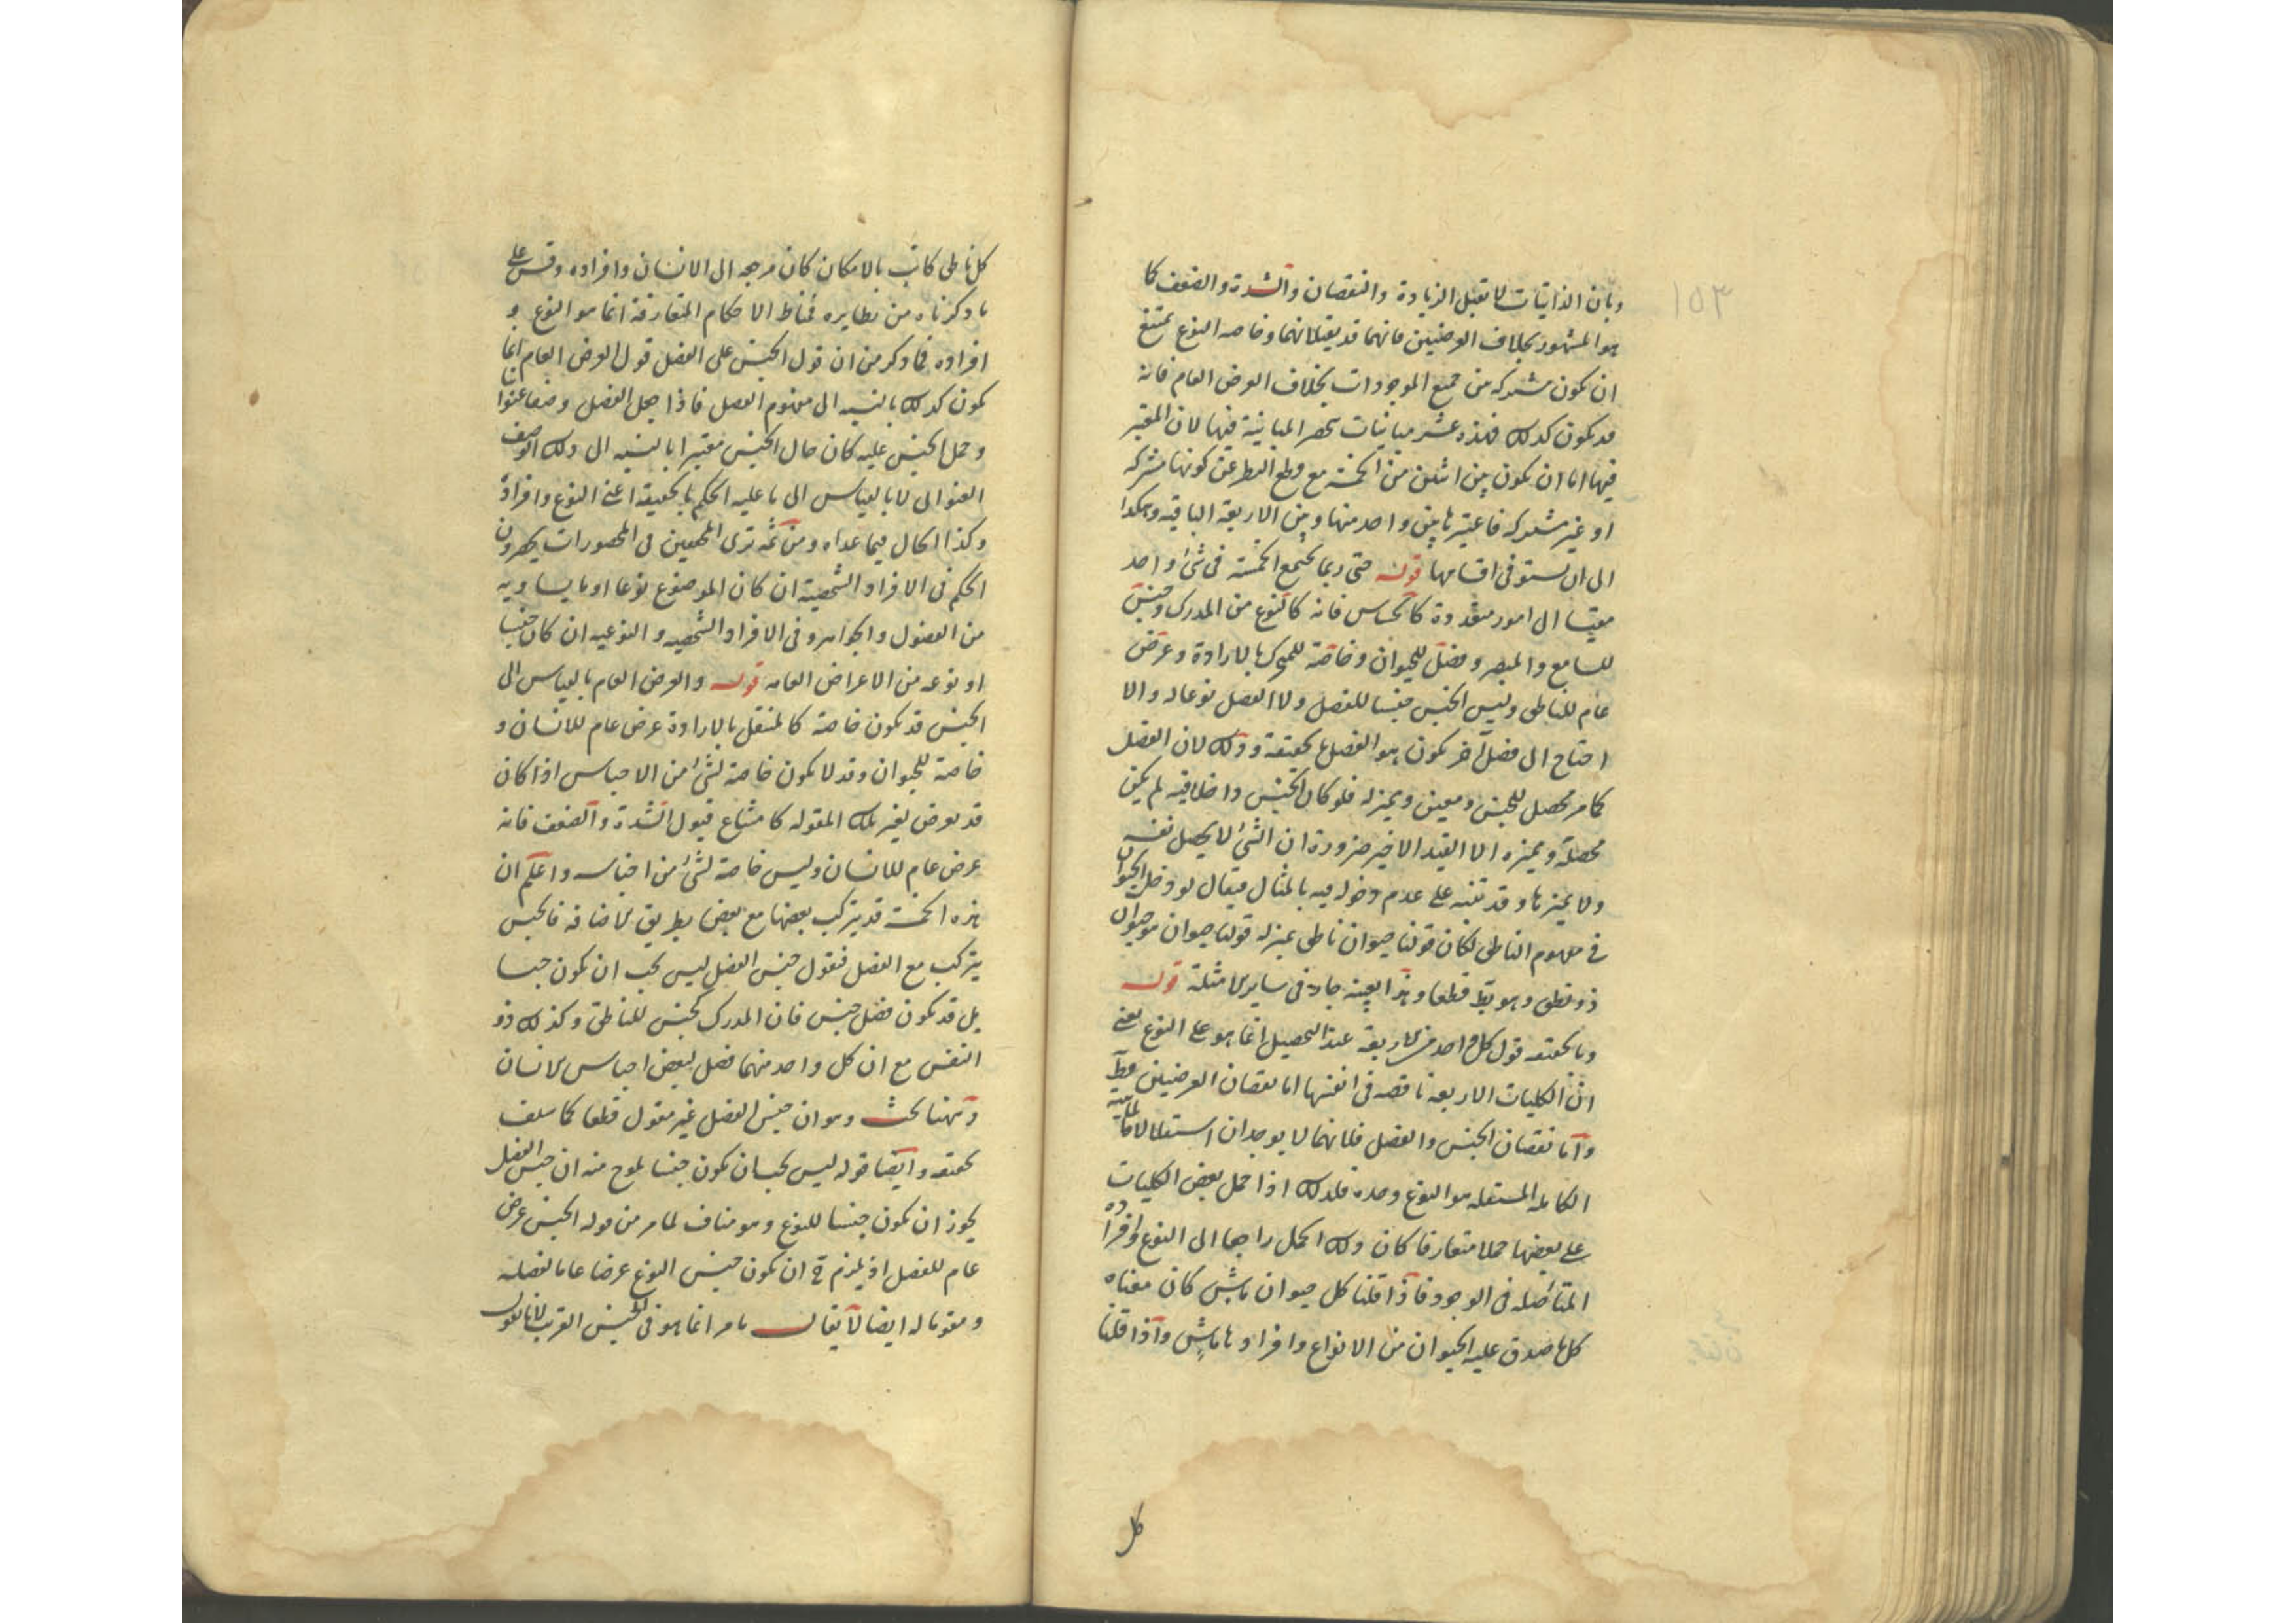 ١٥٣
وبان الذاتيات لا تقبل الزيادة والنقصان والشدة والضعف كما
هو المشهور بخلاف العرضيين فانهما قد يقبلانهما وخاصه النوع يمتنع
ان يكون مشتركه من جميع الموجودات بخلاف العرض العام فانه
قد يكون كذلك فهذه عشر مباينات تحصر المباينة فيها لان المعتبر
فيها اما ان يكون بين اثنين من الخمسة مع قطع النظر عن كونها مشتركه
او غير مشتركه فاعتبرها بين واحد منها وبين الاربعة الباقيه وهكذا
الى ان يستوفى اقسامها قوله حتى ربما يجتمع الخمسة فى شئ واحد
مقيسا الى امور متعددة كالحساس فانه كالنوع من المدرك وجنس
للسامع والمبصر وفصل للحيوان وخاصة للمتحرك بالارادة وعرض
عام للناطق وليس الجنس جنسا للفصل ولا الفصل نوعا له والا
احتاج الى فصل آخر يكون هو الفصل بحقيقة وذلك لان الفصل
كما مر محصل للجنس ومعين ومميز له فلو كان الجنس داخلا فيه لم يكن
محصله ومميزه الا القيد الاخير ضرورة ان الشئ لا يحصل نفسه
ولا يميزها وقد تنبه على عدم دخوله فيه بالمثال فيقال لو دخل الحيوان
فى مفهوم الناطق لكان قولنا حيوان ناطق بمنزله قولنا حيوان هو حيوان
ذو نطق وهو بط قطعا وهذا بعينه جار فى ساير الامثلة قوله
وبالحقيقه قول كل واحد من الاربعة عند التحصيل انما هو على النوع يعنى
ان الكليات الاربعه ناقصه فى انفسها اما نقصان العرضيين فط
واما نقصان الجنس والفصل فلانهما لا يوجدان استقلالا فالماهية
الكامله المستقله هو النوع وحده فلذلك اذا حمل بعض الكليات
على بعضها حملا متعارفا كان ذلك الحمل راجعا الى النوع وافراده
المتأصله فى الوجود فاذا قلنا كل حيوان ماش كان معناه
كل ما صدق عليه الحيوان من الانواع وافرادها ماش واذا قلنا
كل
كل ناطق كاتب بالامكان كان مرجعه الى الانسان وافراده وقس على
ما ذكرناه من نظايره فمناط الاحكام المتعارفة انما هو النوع و
افراده فما ذكر من ان قول الجنس على الفصل قول العرض العام انما
يكون كذلك بالنسبه الى مفهوم الفصل فاذا جعل الفصل وصفا عنوانا
وحمل الجنس عليه كان حال الجنس معتبرا بالنسبه الى ذلك الوصف
العنوانى لا بالقياس الى ما عليه الحكم بالحقيقة اعنى النوع وافراده
وكذا الحال فيما عداه ومن ثمه ترى المحققين فى المحصورات يحصرون
الحكم فى الافراد الشخصية ان كان الموضوع نوعا او ما يساويه
من الفصول والخواص وفى الافراد الشخصيه والنوعيه ان كان جنسا
او نوعه من الاعراض العامه قوله والعرض العام بالقياس الى
الجنس قد يكون خاصة كالمنتقل بالارادة عرض عام للانسان و
خاصة للحيوان وقد لا يكون خاصة لشئ من الاجناس اذا كان
قد يعرض لغير تلك المقوله كامتناع قبول الشدة والضعف فانه
عرض عام للانسان وليس خاصة لشئ من اجناسه واعلم ان
هذه الخمسة قد يتركب بعضها مع بعض بطريق الاضافه فالجنس
يتركب مع الفصل فنقول جنس الفصل ليس يجب ان يكون جنسا
بل قد يكون فصل جنس فان المدرك كجنس للناطق وكذلك ذو
النفس مع ان كل واحد منهما فصل لبعض اجناس الانسان
وههنا بحث وهو ان جنس الفصل غير معقول قطعا كما سلف
تحقيقه وايضا قوله ليس يجب ان يكون جنسا يلوح منه ان جنس الفصل
يجوز ان يكون جنسا للنوع وهو مناف لما مر من قوله الجنس عرض
عام للفصل اذ يلزم ح ان يكون جنس النوع عرضا عاما لفصله
ومقوما له ايضا لا يقال ما مر انما هو فى الجنس القريب لانا نقول